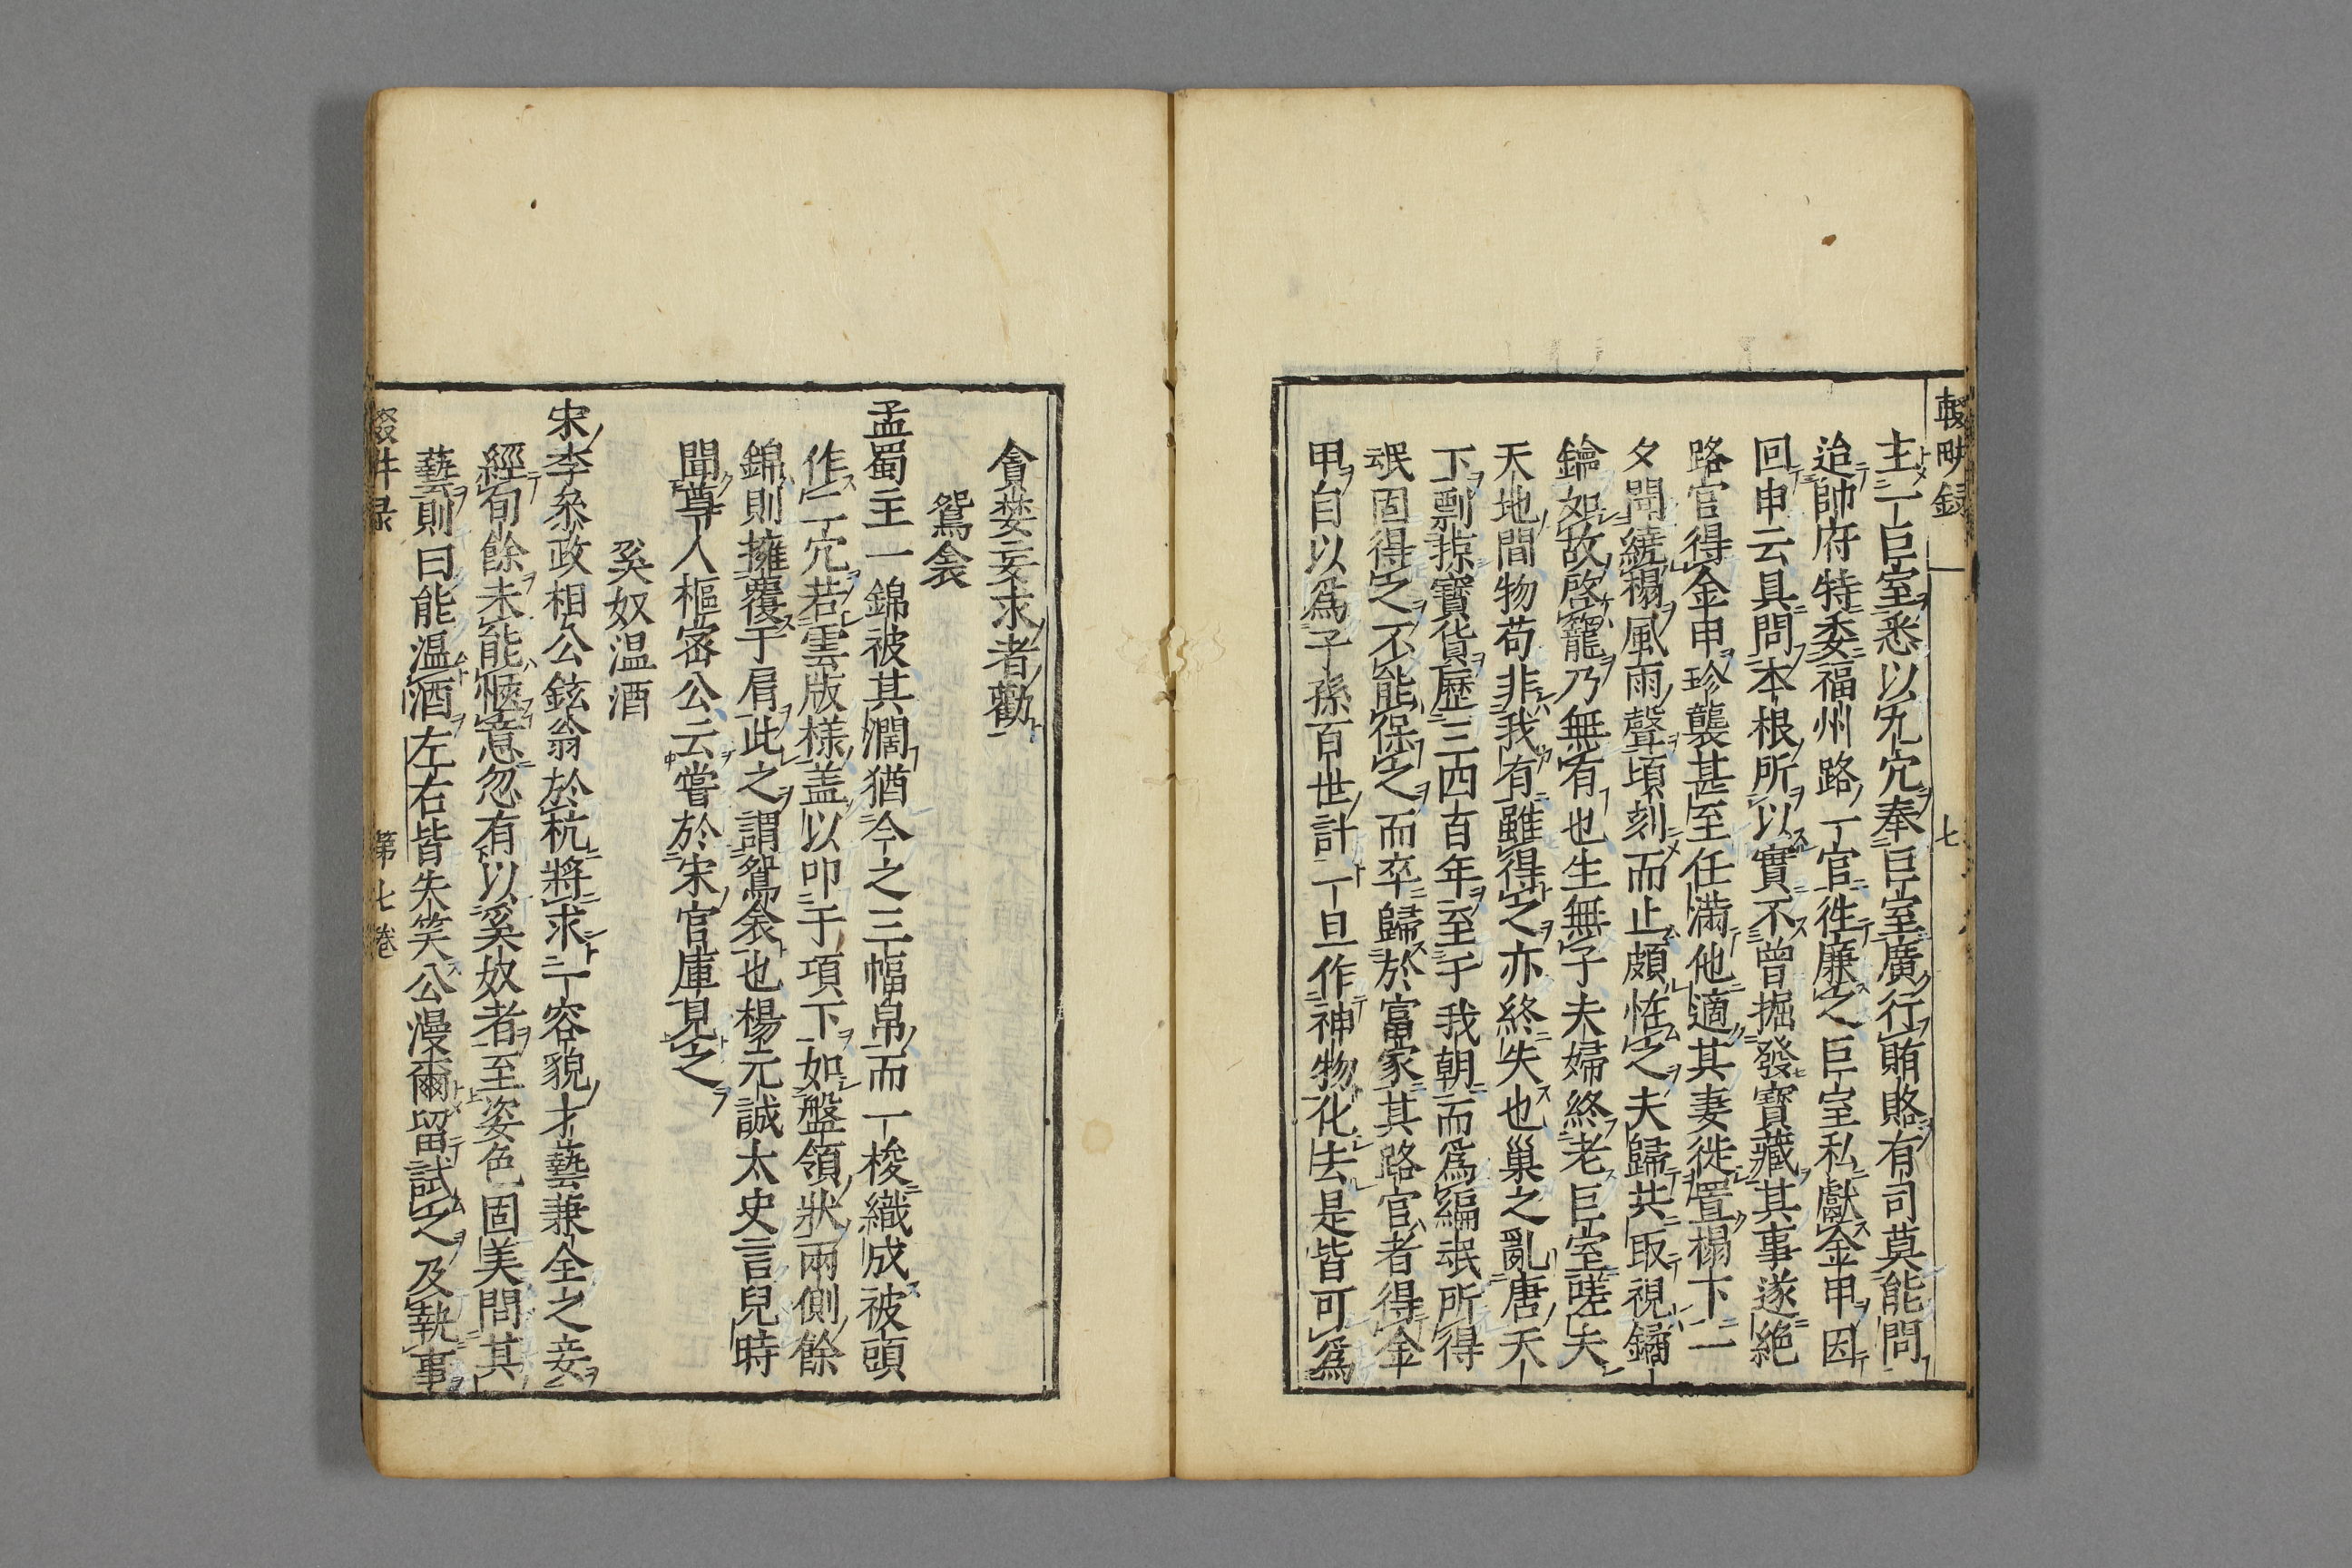 輟畊録
七
主一巨室悉以九穴奉巨室廣行賄賂有司莫能問
迨帥府特委福州路一官徃廉之巨室私獻金甲因
回申云具問本根所以實不曾掘發寶藏其事遂絶
路官得金甲珍襲甚至任滿他適其妻徙置榻下一
夕聞繞榻風雨聲頃刻而止頗恠之夫歸共取視鐍
鑰如故啓籠乃無有也生無子夫婦終老巨室嗟夫
天地間物苟非我有雖得之亦終失也巢之亂唐天
下剽掠寶貨歴三四百年至于我朝而爲編氓所得
氓固得之不能保之而卒歸於富家其路官者得金
甲自以爲子孫百世計一旦作神物化去是皆可爲
貪婪妄求者勸
鴛衾
孟蜀主一錦被其濶猶今之三幅帛而一梭織成被頭
作二穴若雲版様盖以叩于項下如盤領狀兩側餘
錦則擁覆于肩此之謂鴛衾也楊元誠太史言兒時
聞尊人樞宻公云嘗於宋官庫見之
奚奴温酒
宋李叅政相公鉉翁於杭將求一容貌才藝兼全之妾
經旬餘未能愜意忽有以奚奴者至姿色固美問其
藝則曰能温酒左右皆失笑公漫爾留試之及執事
輟井录
第七卷